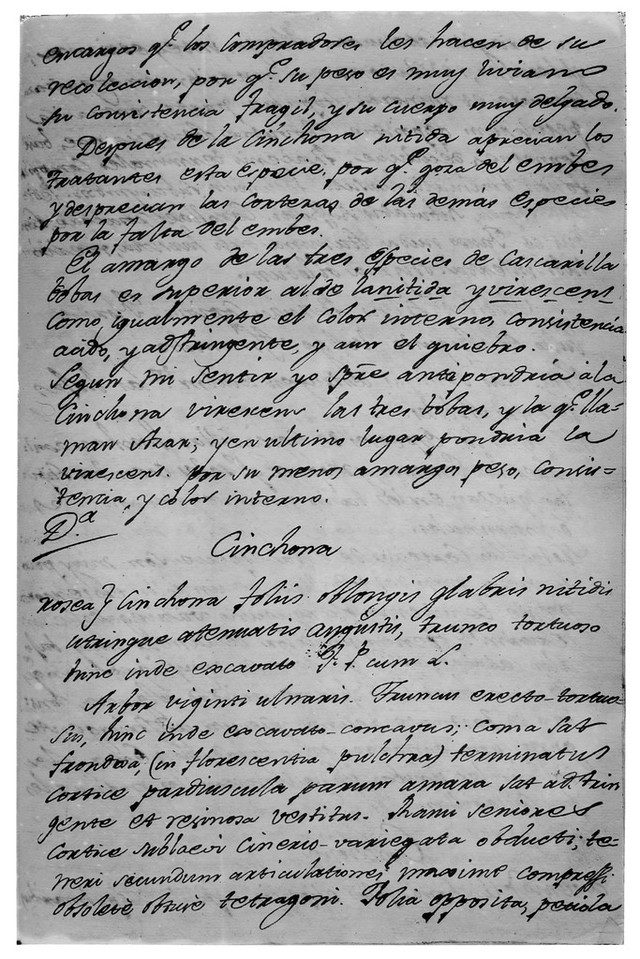 encargos q.e los Compradores les hacen de su
recoleccion, por q.e su peso es muy liviano
su consistencia fragil, y su cuerpo muy delgado.
Despues de la Cinchona nitida aprecian los
tratantes esta especie, por q.e goza del embes
y desprecian las cortezas de las demás especies
por la falta del embes.
El amargo de las tres especies de Cascarilla
bobas es superior al de la nitida y virescens
como, igualmente el color interno, consistencia
acido, y adstringente, y aun el quiebro.
Segun mi sentir yo spre antepondria á la
Cinchona virescens las tres bobas, y la q.e lla=
man Azar; y en ultimo lugar pondria la
virescens. por su menos amargo, peso, Consis=
tencia, y color interno.
D.a
Cinchona
rosea} Cinchona foliis oblongis glabris nitidis
utringue atenuatis angustis, trunco tortuoso
hinc inde excavato F. P. cum L.
Arbor viginti ulnaris. Truncus erecto-tortuo-
sus, hinc inde excavato-concavus; coma sat
frondosa, (in florescentia pulchra) terminatus
cortice parduscula parum amara sat adstrin
gente et resinosa vestitus. Rami seniores
cortice sublaevi cinerio-variegata obducti; te-
neri secundum articulationes maxime compressi
obsoletè obtuse tetragoni. Folia opposita,